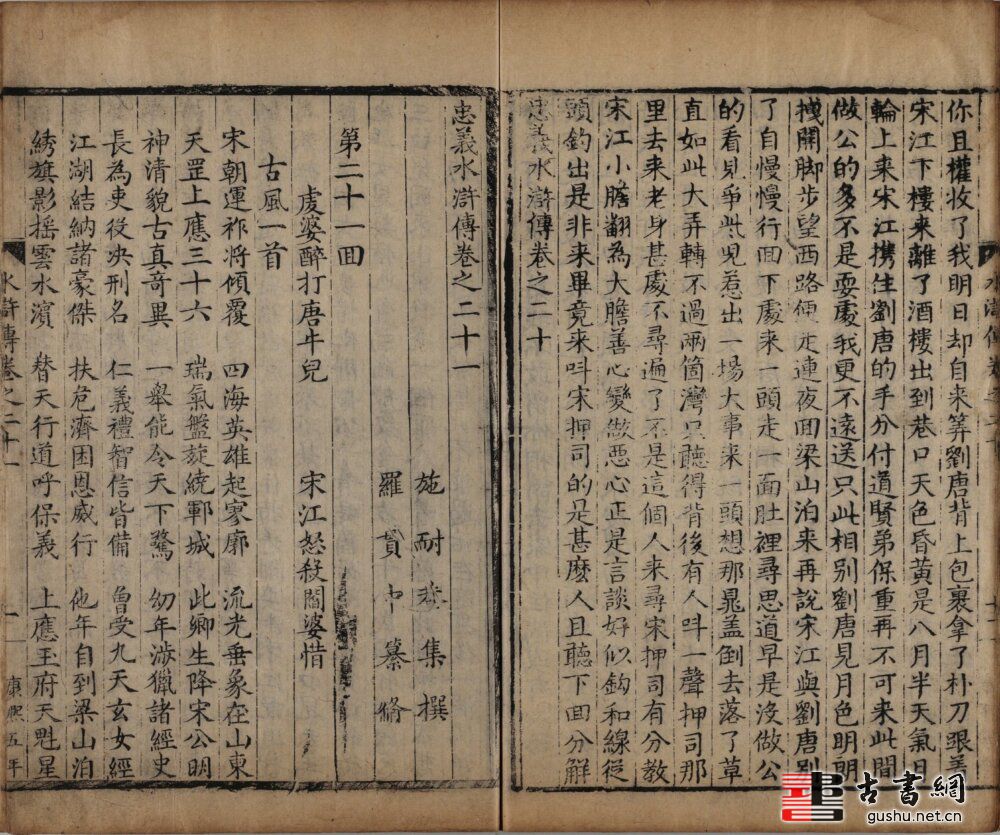 你且權收了我明日却自来筭劉唐背上包裹拿了朴刀跟着
宋江下樓来離了酒樓出到巷口天色昏黃是八月半天氣月
輪上来宋江携住劉唐的手分付道賢弟保重再不可来此間
做公的多不是耍處我更不遠送只此相别劉唐見月色明朗
拽開脚步望西路便走連夜囬梁山泊来再說宋江與劉唐别
了自慢慢行囬下處来一頭走一面肚裡尋思道早是沒做公
的看見爭些兒惹出一場大事来一頭想那晁盖倒去落了草
直如此大弄轉不過兩箇灣只聽得背後有人叫一聲押司那
里去来老身甚處不尋遍了不是這個人来尋宋押司有分教
宋江小膽翻為大膽善心變做惡心正是言談好似鈎和線從
頭釣出是非来畢竟来叫宋押司的是甚麽人且聽下囬分解
忠義水滸傳卷之二十
忠義水滸傳卷之二十一
施耐菴集撰
羅貫中纂脩
第二十一囬
虔婆醉打唐牛兒 宋江怒殺閻婆惜
古風一首
宋朝運祚將傾覆 四海英雄起寥廓 流光垂象在山東
天罡上應三十六 瑞氣盤旋繞鄆城 此鄉生降宋公明
神清貌古真奇異 一舉能令天下驚 幼年涉獵諸經史
長為吏役决刑名 仁義禮智信皆備 曾受九天玄女經
江湖結納諸豪傑 扶危濟困恩威行 他年自到梁山泊
綉旗影摇雲水濱 替天行道呼保義 上應玉府天魁星
水滸傳卷之二十一 一 康熙五年
古書網
gushu.net.cn